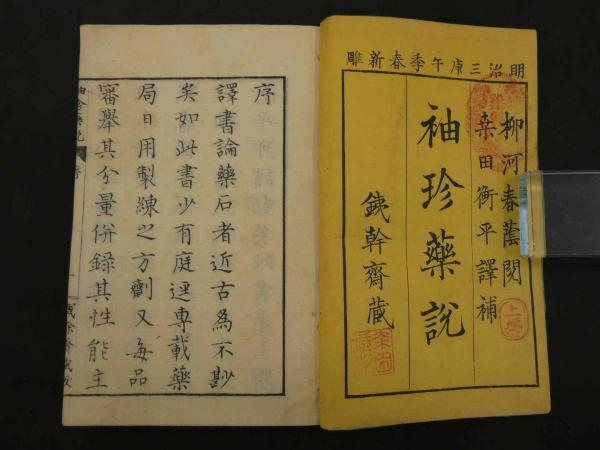 明治三庚午季春新雕
柳河春蔭閲
桒田衡平譯補
袖珍藥說
銕幹齋藏
上編
序
譯書論藥石者近古為不尠
矣如此書少有庭逕專載藥
局日用製練之方劑又每品
審舉其分量併錄其性能主
袖珍藥說
序